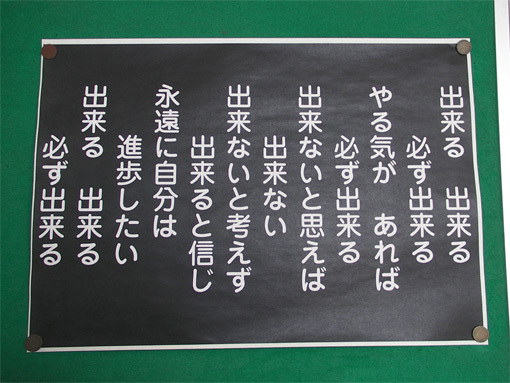 出来る　出来る
必ず出来る
やる気が　あれば
必ず出来る
出来ないと思えば
出来ない
出来ないと考えず
出来ると信じ
永遠に自分は
進歩したい
出来る　出来る
必ず出来る